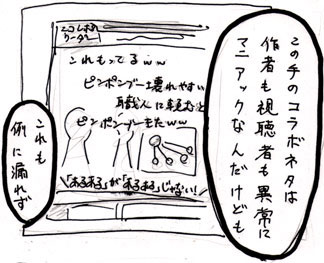 この手のコラボネタは
作者も視聴者も異常に
マニアックなんだけども
これもってるww
ピンポンブー壊れやすい
職人に頼むと
ピンポンブーもたww
「あるある」が「あるある」じゃない!
これも
例に漏れず